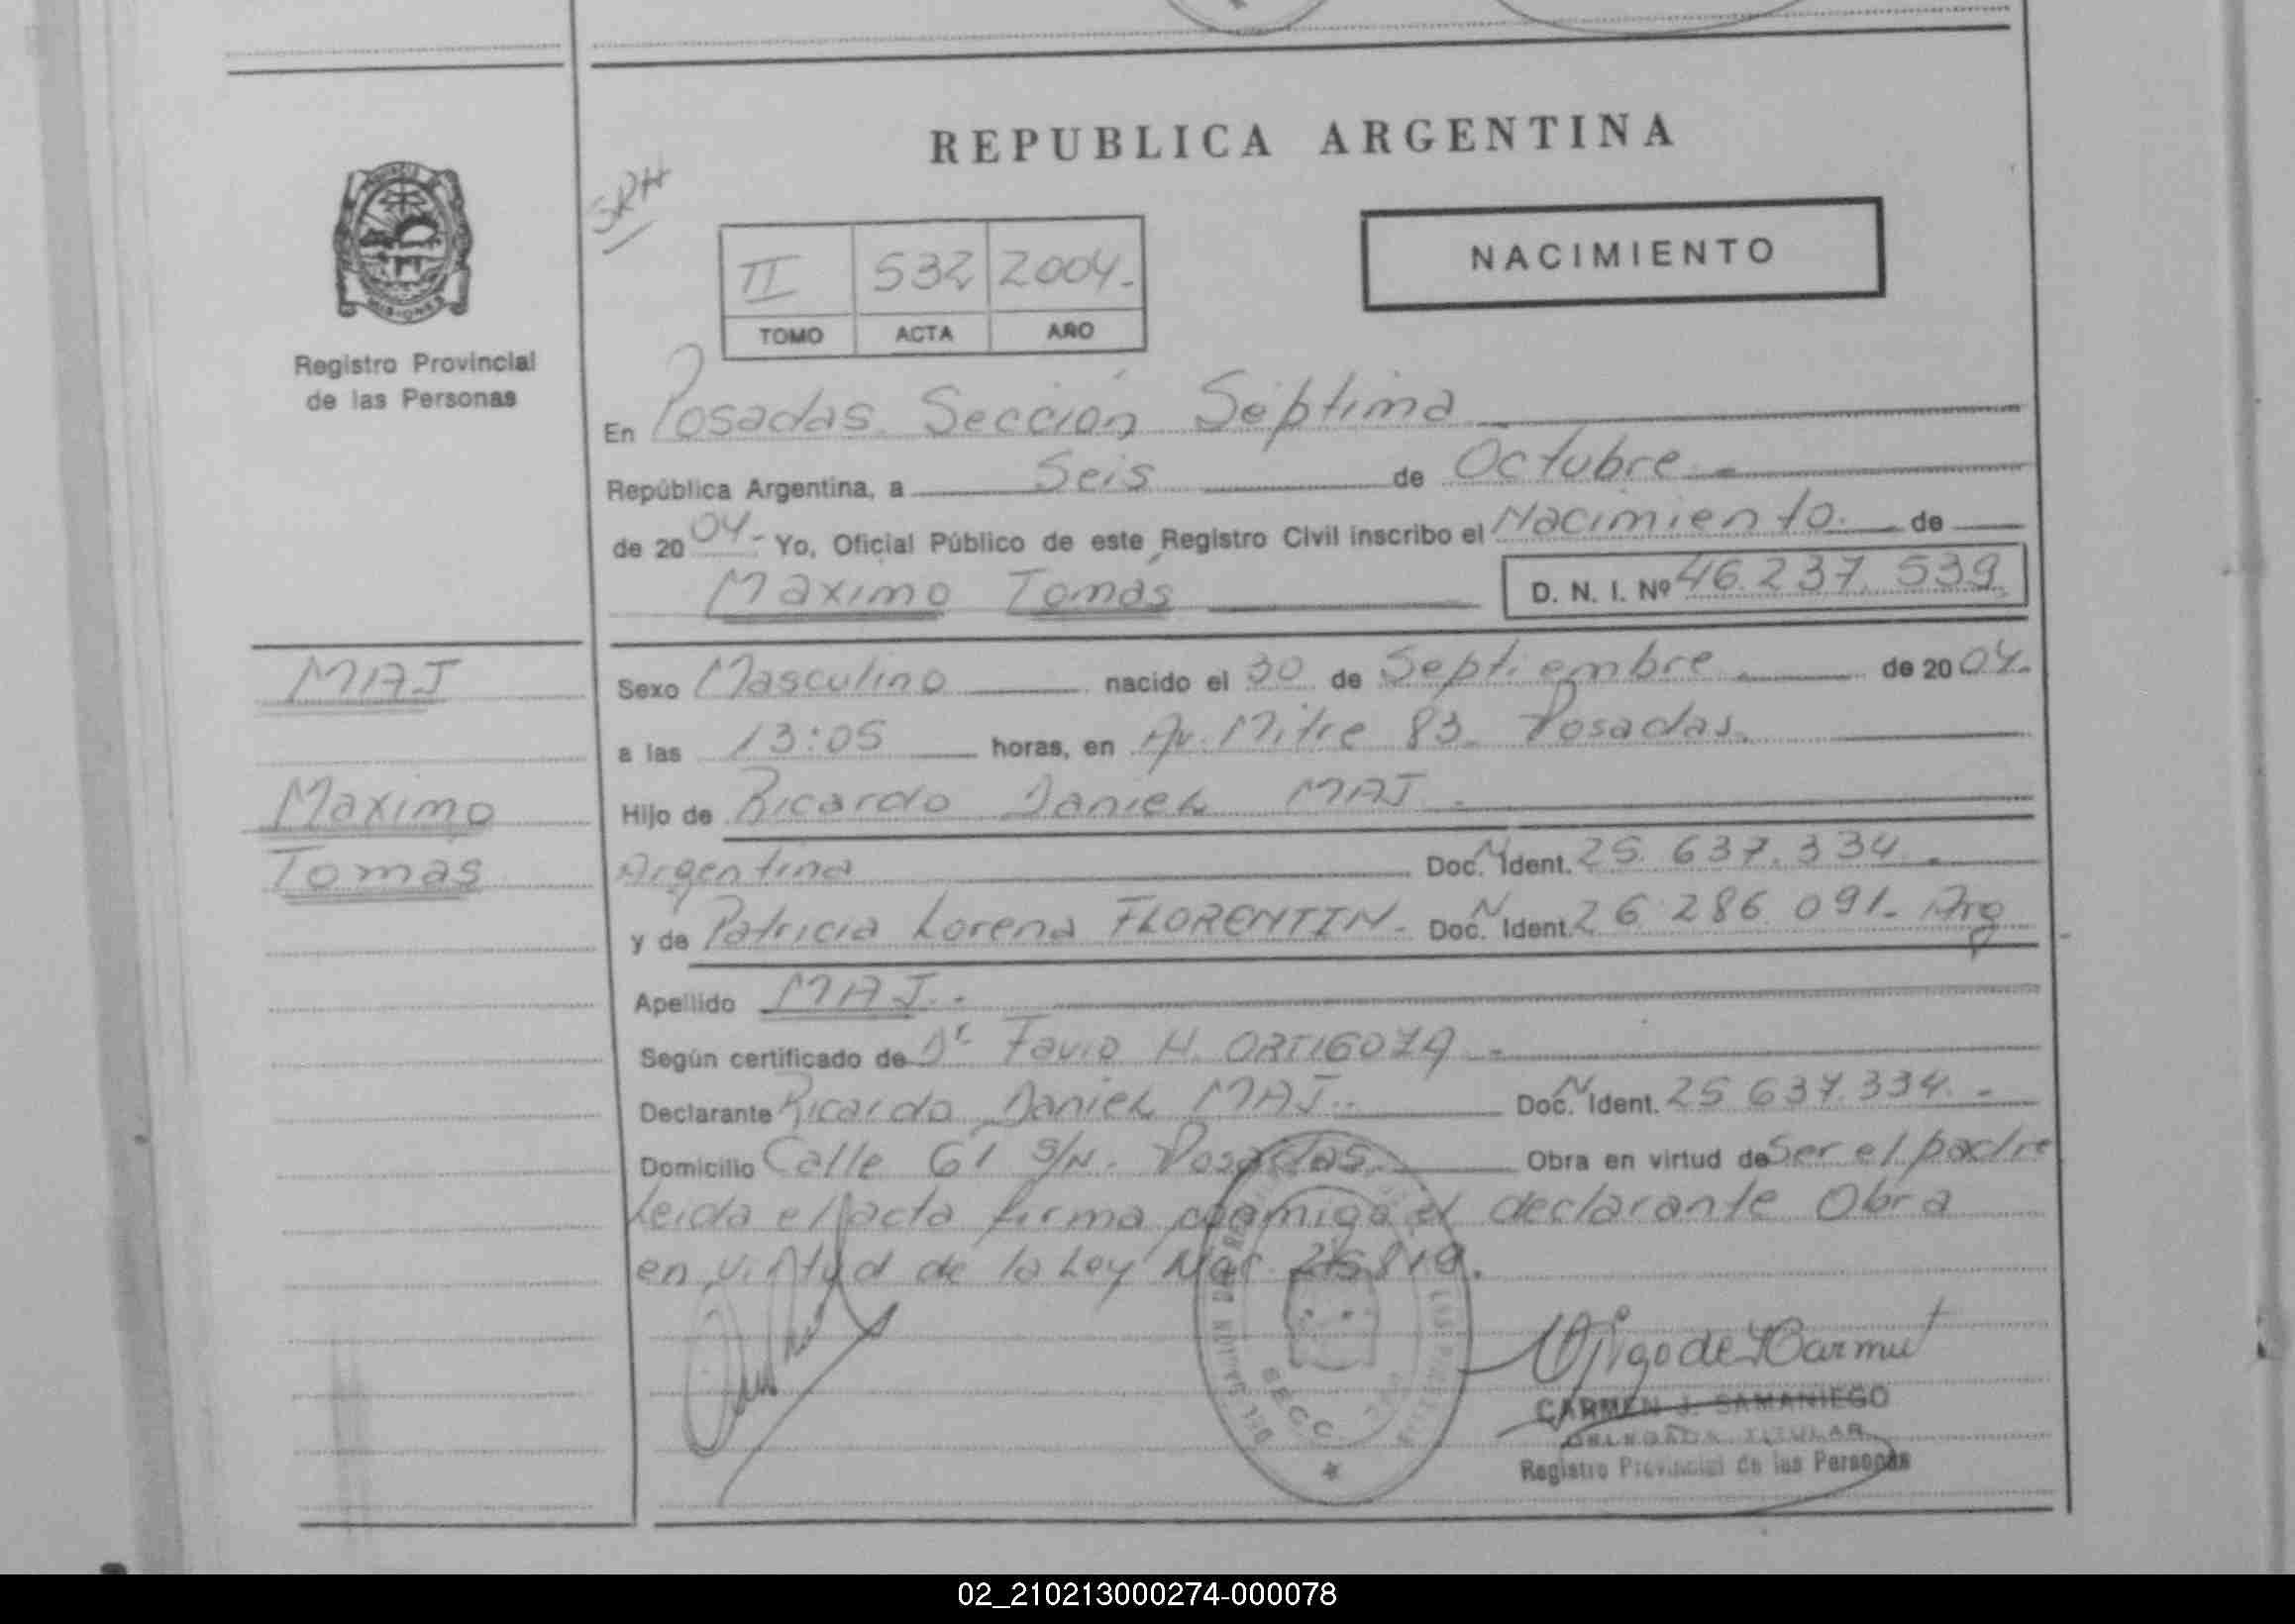 REPUBLICA ARGENTINA
SRH
NACIMIENTO
II 532 2004.-
TOMO ACTA AÑO
Registro Provincial
de las Personas
En Posadas Sección Séptima
República Argentina, a Seis de Octubre.-
de 2004- Yo, Oficial Público de este Registro Civil inscribo el Nacimiento. de
Máximo Tomás D. N. I. Nº 46.237.539
MAJ
Sexo Masculino nacido el 30 de Septiembre de 2004.
a las 13:05 horas, en Av. Mitre 83. Posadas.
Máximo
Hijo de Ricardo Daniel MAJ.-
Tomás
Argentina Doc. N Ident. 25.637.334.-
y de Patricia Lorena FLORENTIN.- Doc. N Ident. 26.286.091.- Arg
Apellido MAJ.-
Según certificado de Dr. Favio H. ORTIGOZA.-
Declarante Ricardo Daniel MAJ.- Doc. N Ident. 25.637.334.-
Domicilio Calle 61 S/N. Posadas. Obra en virtud de Ser el padre
Leida el acta firma conmigo el declarante Obra
en virtud de la Ley Nac. 25819.
SECC.
CARMEN J. SAMANIEGO
DELEGADA TITULAR
Registro Provincial de las Personas
02_210213000274-000078